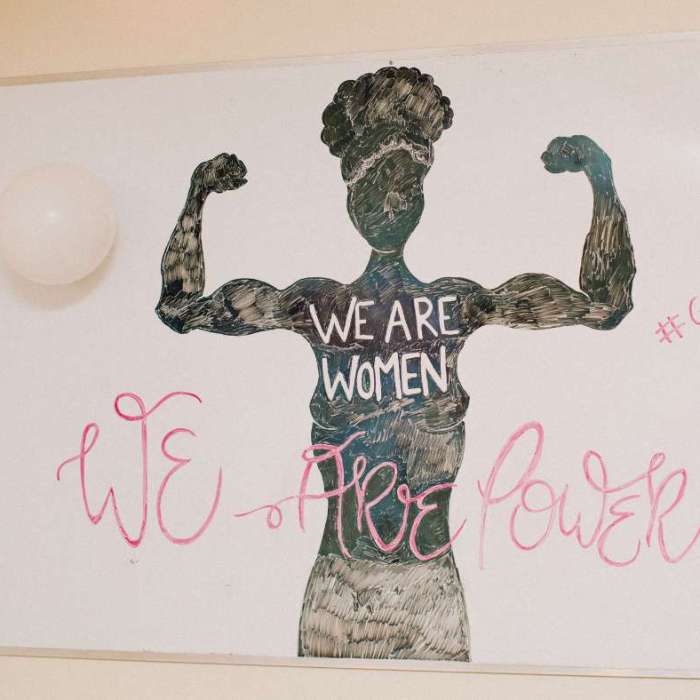 WE ARE
WOMEN
WE ARE POWER